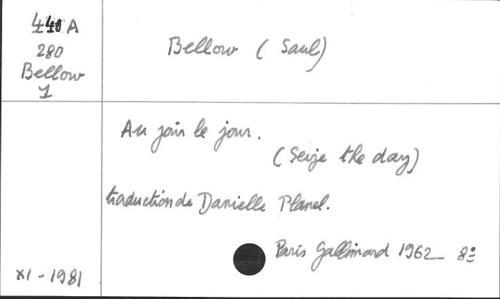 448 A
280
Bellow
1
Bellow ( Saul)
Au jour le jour.
( Seize the day)
traduction de Danielle Planel.
Paris Gallimard 1962_ 8º
XI - 1981